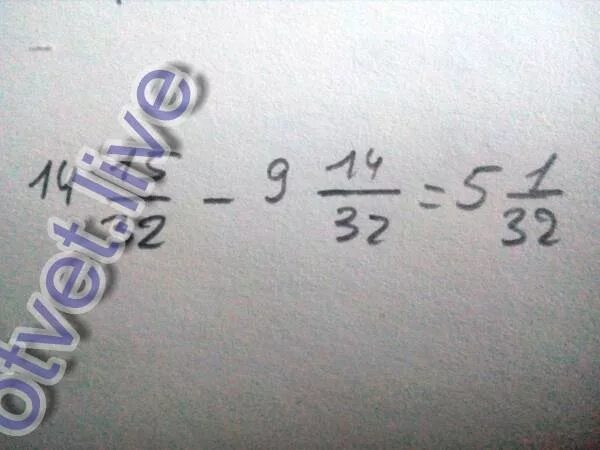 14 15/32 - 9 14/32 = 5 1/32
otvet.live